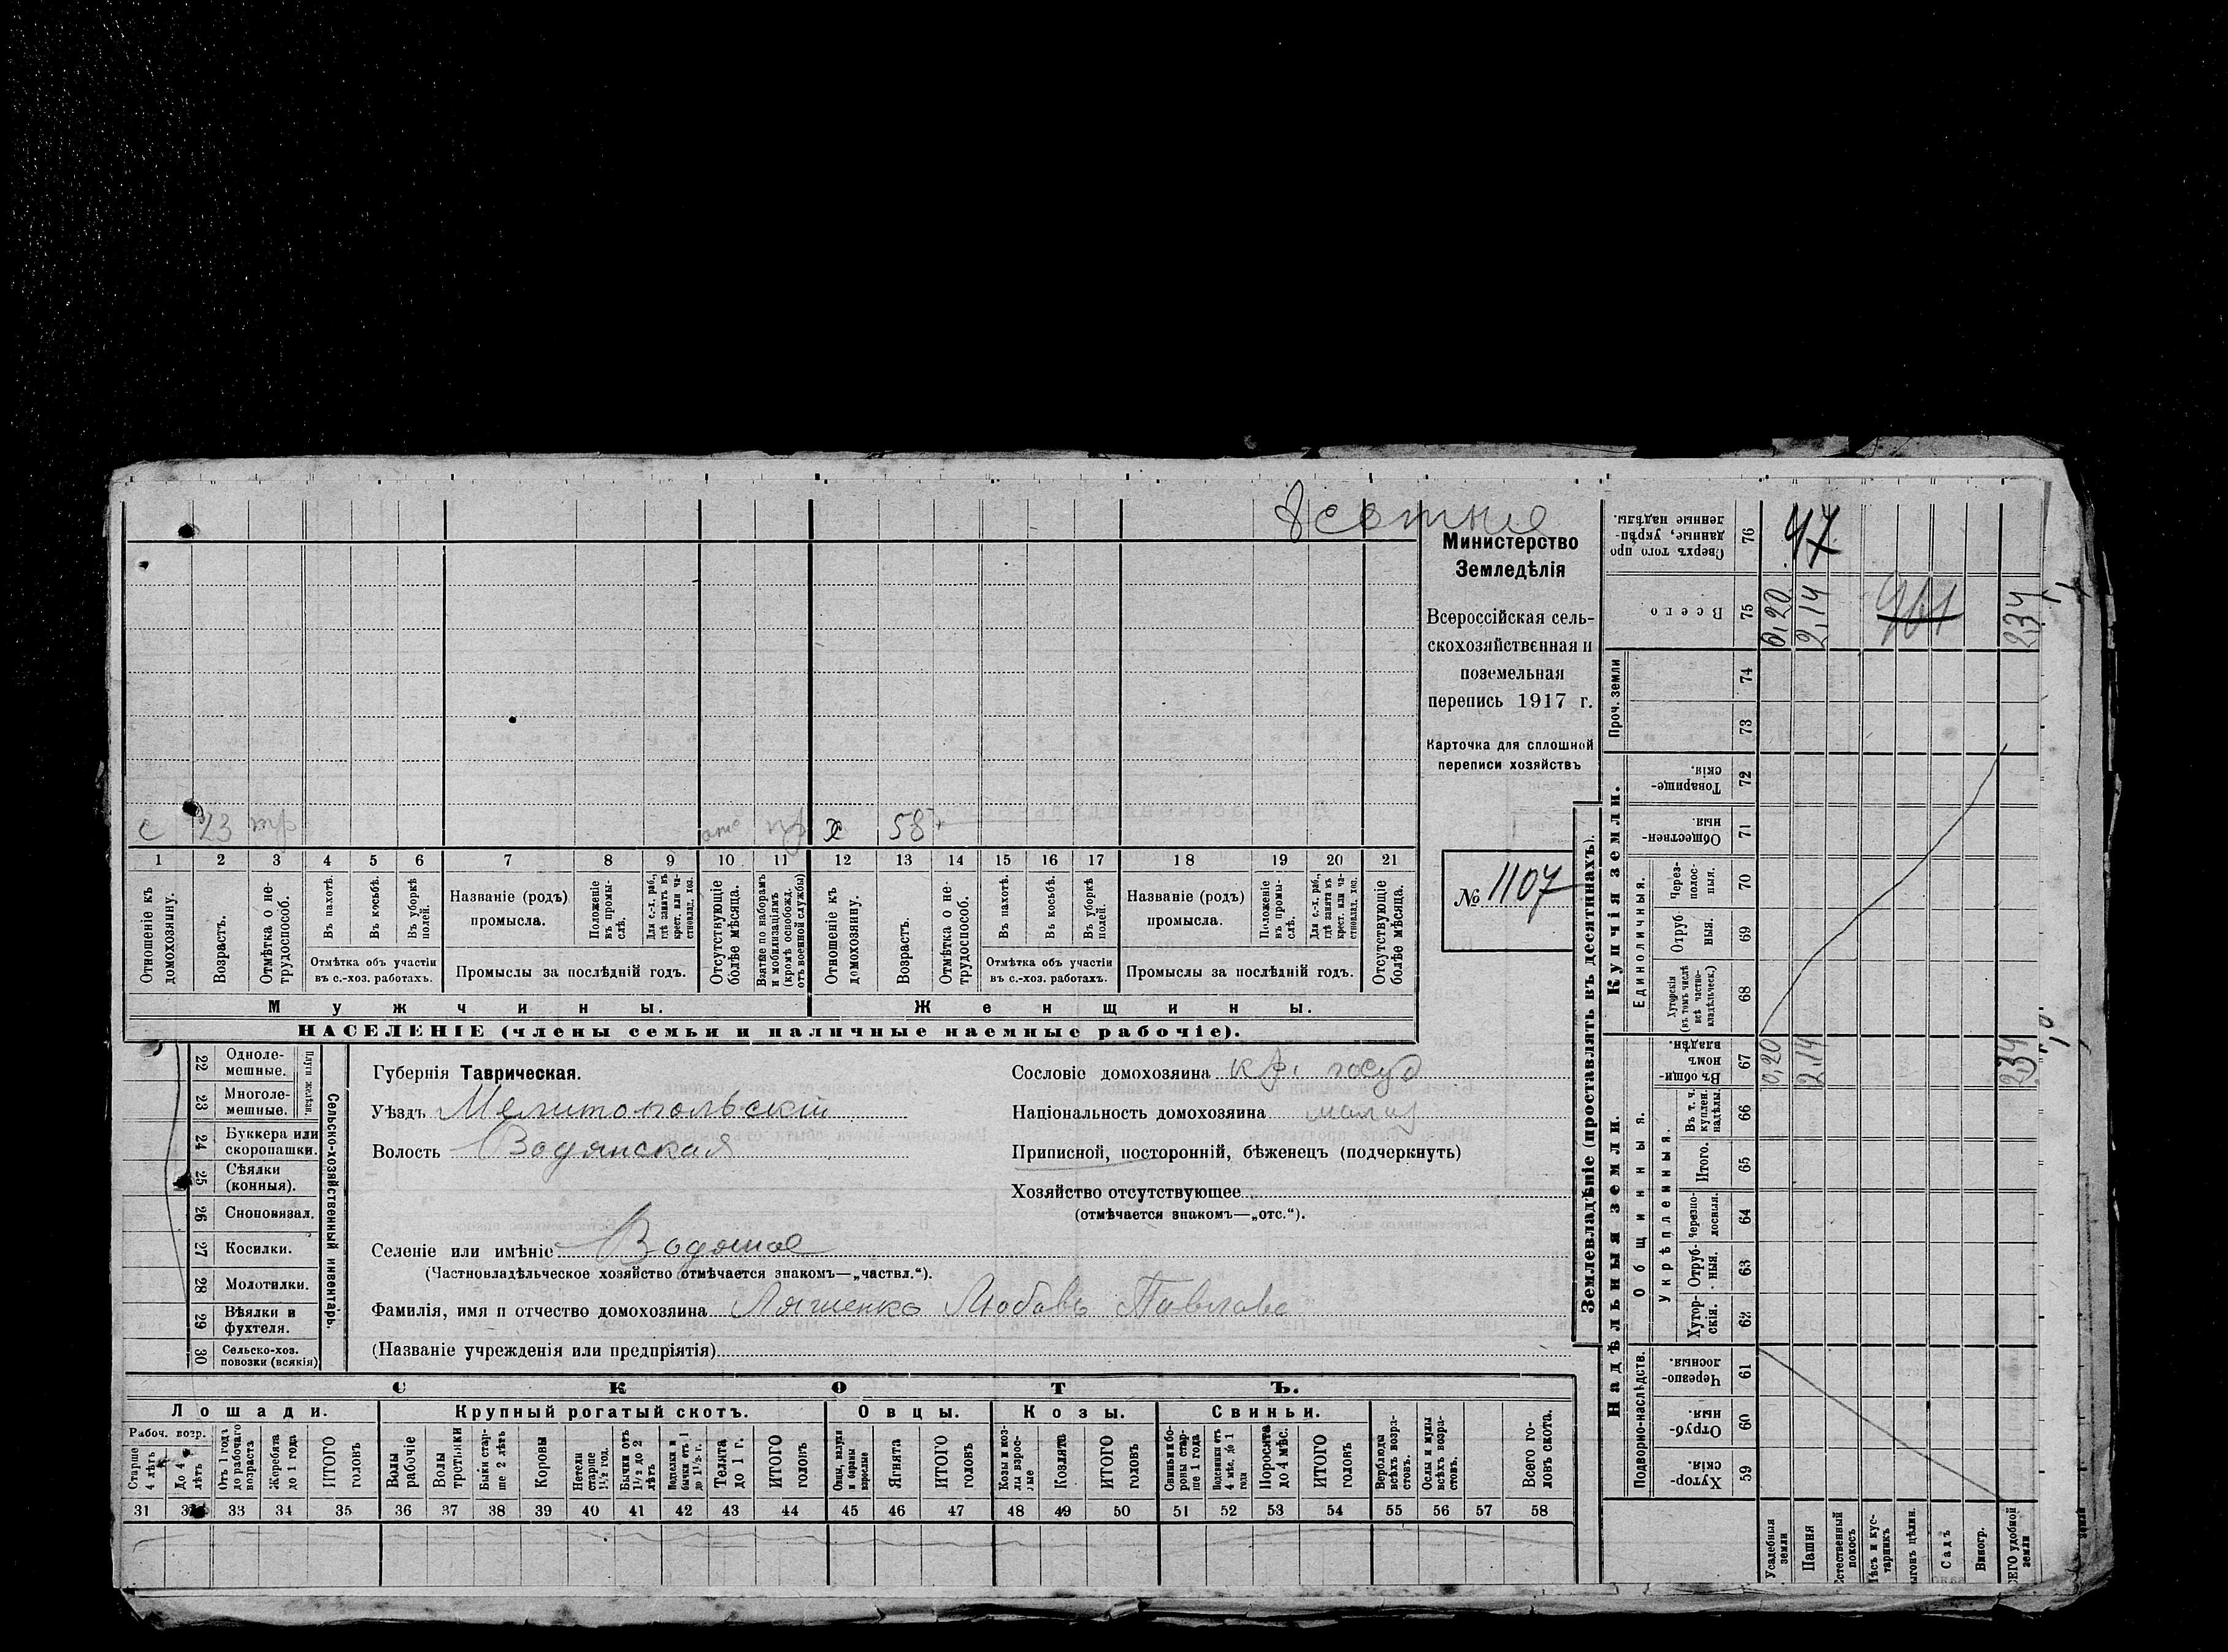 Министерство
Земледѣлія
Всероссійская сель-
скохозяйственная и
поземельная
перепись 1917 г.
Карточка для сплошной
переписи хозяйствъ
№ 1107
с 23 х 58
1 2 3 4 5 6 7 8 9 10 11 12 13 14 15 16 17 18 19 20 21
Отношеніе къ домохозяину.
Возрастъ.
Отмѣтка о не-трудоспособ.
Въ пахотѣ.
Въ косьбѣ.
Въ уборкѣ полей.
Отмѣтка объ участіи
въ с.-хоз. работахъ.
Названіе (родъ)
промысла.
Положеніе въ промы-слѣ.
Для с.-х. раб., гдѣ занятъ въ крест. или ча-стновлад. хоз.
Промыслы за послѣдній годъ.
Отсутствующіе болѣе мѣсяца.
Взятые по наборамъ и мобилизаціямъ (кромѣ освобожд. отъ военной службы)
Отношеніе къ домохозяину.
Возрастъ.
Отмѣтка о не-трудоспособ.
Въ пахотѣ.
Въ косьбѣ.
Въ уборкѣ полей.
Отмѣтка объ участіи
въ с.-хоз. работахъ.
Названіе (родъ)
промысла.
Положеніе въ промы-слѣ.
Для с.-х. раб., гдѣ занятъ въ крест. или ча-стновлад. хоз.
Промыслы за послѣдній годъ.
Отсутствующіе болѣе мѣсяца.
Мужчины. Женщины.
НАСЕЛЕНІЕ (члены семьи и наличные наемные рабочіе).
22 Одноле-мешные.
23 Многоле-мешные.
Плуги желѣзн.
24 Буккера или скоропашки.
25 Сѣялки (конныя).
26 Сноповязал.
27 Косилки.
28 Молотилки.
29 Вѣялки и фухтеля.
30 Сельско-хоз. повозки (всякія)
Сельско-хозяйственный инвентарь.
Губернія Таврическая.
Уѣздъ Мелитопольскій
Волость Водянская
Сословіе домохозяина кр. госуд
Національность домохозяина малор
Приписной, посторонній, бѣженец (подчеркнуть)
Хозяйство отсутствующее
(отмѣчается знакомъ—„отс.“).
Селеніе или имѣніе Водяное
(Частновладѣльческое хозяйство отмѣчается знакомъ—„частвл.“).
Фамилія, имя и отчество домохозяина Ляшенко Любовь Павлова
(Названіе учрежденія или предпріятія)
СКОТЪ.
Лошади. Крупный рогатый скотъ. Овцы. Козы. Свиньи.
Рабоч. возр.
Старше 4 лѣтъ
До 4 лѣтъ
Отъ 1 года до рабочаго возраста
Жеребята до 1 года
ИТОГО головъ
Волы рабочіе
Волы третьяки
Быки стар-ше 2 лѣтъ
Коровы
Нетели старше 1½ год.
Бычки отъ 1½ до 2 лѣтъ
Телята до 1 г.
ИТОГО головъ
Ягнята
ИТОГО головъ
Козы и коз-лы взрос-лые
Козлята
ИТОГО головъ
Свиньи бо-ровы стар-ше 1 года
Подсвинки отъ 4 мѣс. до 1 года
Поросята до 4 мѣс.
ИТОГО головъ
Верблюды всѣхъ возра-стовъ.
Ослы и мулы всѣхъ возра-стовъ.
Всего го-ловъ скота.
31 33 34 35 36 37 38 39 40 41 42 43 44 45 46 47 48 49 50 51 52 53 54 55 56 57 58
Землевладѣніе (проставлять въ десятинахъ).
Надѣльныя земли.
Купчія земли.
Проч. земли
Подворно-наслѣдств.
Общинныя.
Укрѣпленныя.
Единоличныя.
Сверхъ того про данные, укрѣп-ленные надѣлы. 76 47
Всего 75 0,20 2,14 2,34
74
73
Товарище-скія. 72
Обществен-ныя. 71
Через-полос-ныя. 70
Отруб ныя. 69
Хуторскія (въ томъ числѣ всѣ частно-владѣльческ.) 68
Въ общи-номъ владѣн. 67 0,20 2,14 2,34
Въ т. ч. куплен. надѣлы. 66
Итого. 65
Черезпо-лосныя. 64
Отруб-ныя. 63
Хутор-скія. 62
Черезпо-лосныя. 61
Отруб-ныя. 60
Хутор-скія. 59
Усадебныя земли
Пашня
Естественный покосъ
Садъ
Виногр.